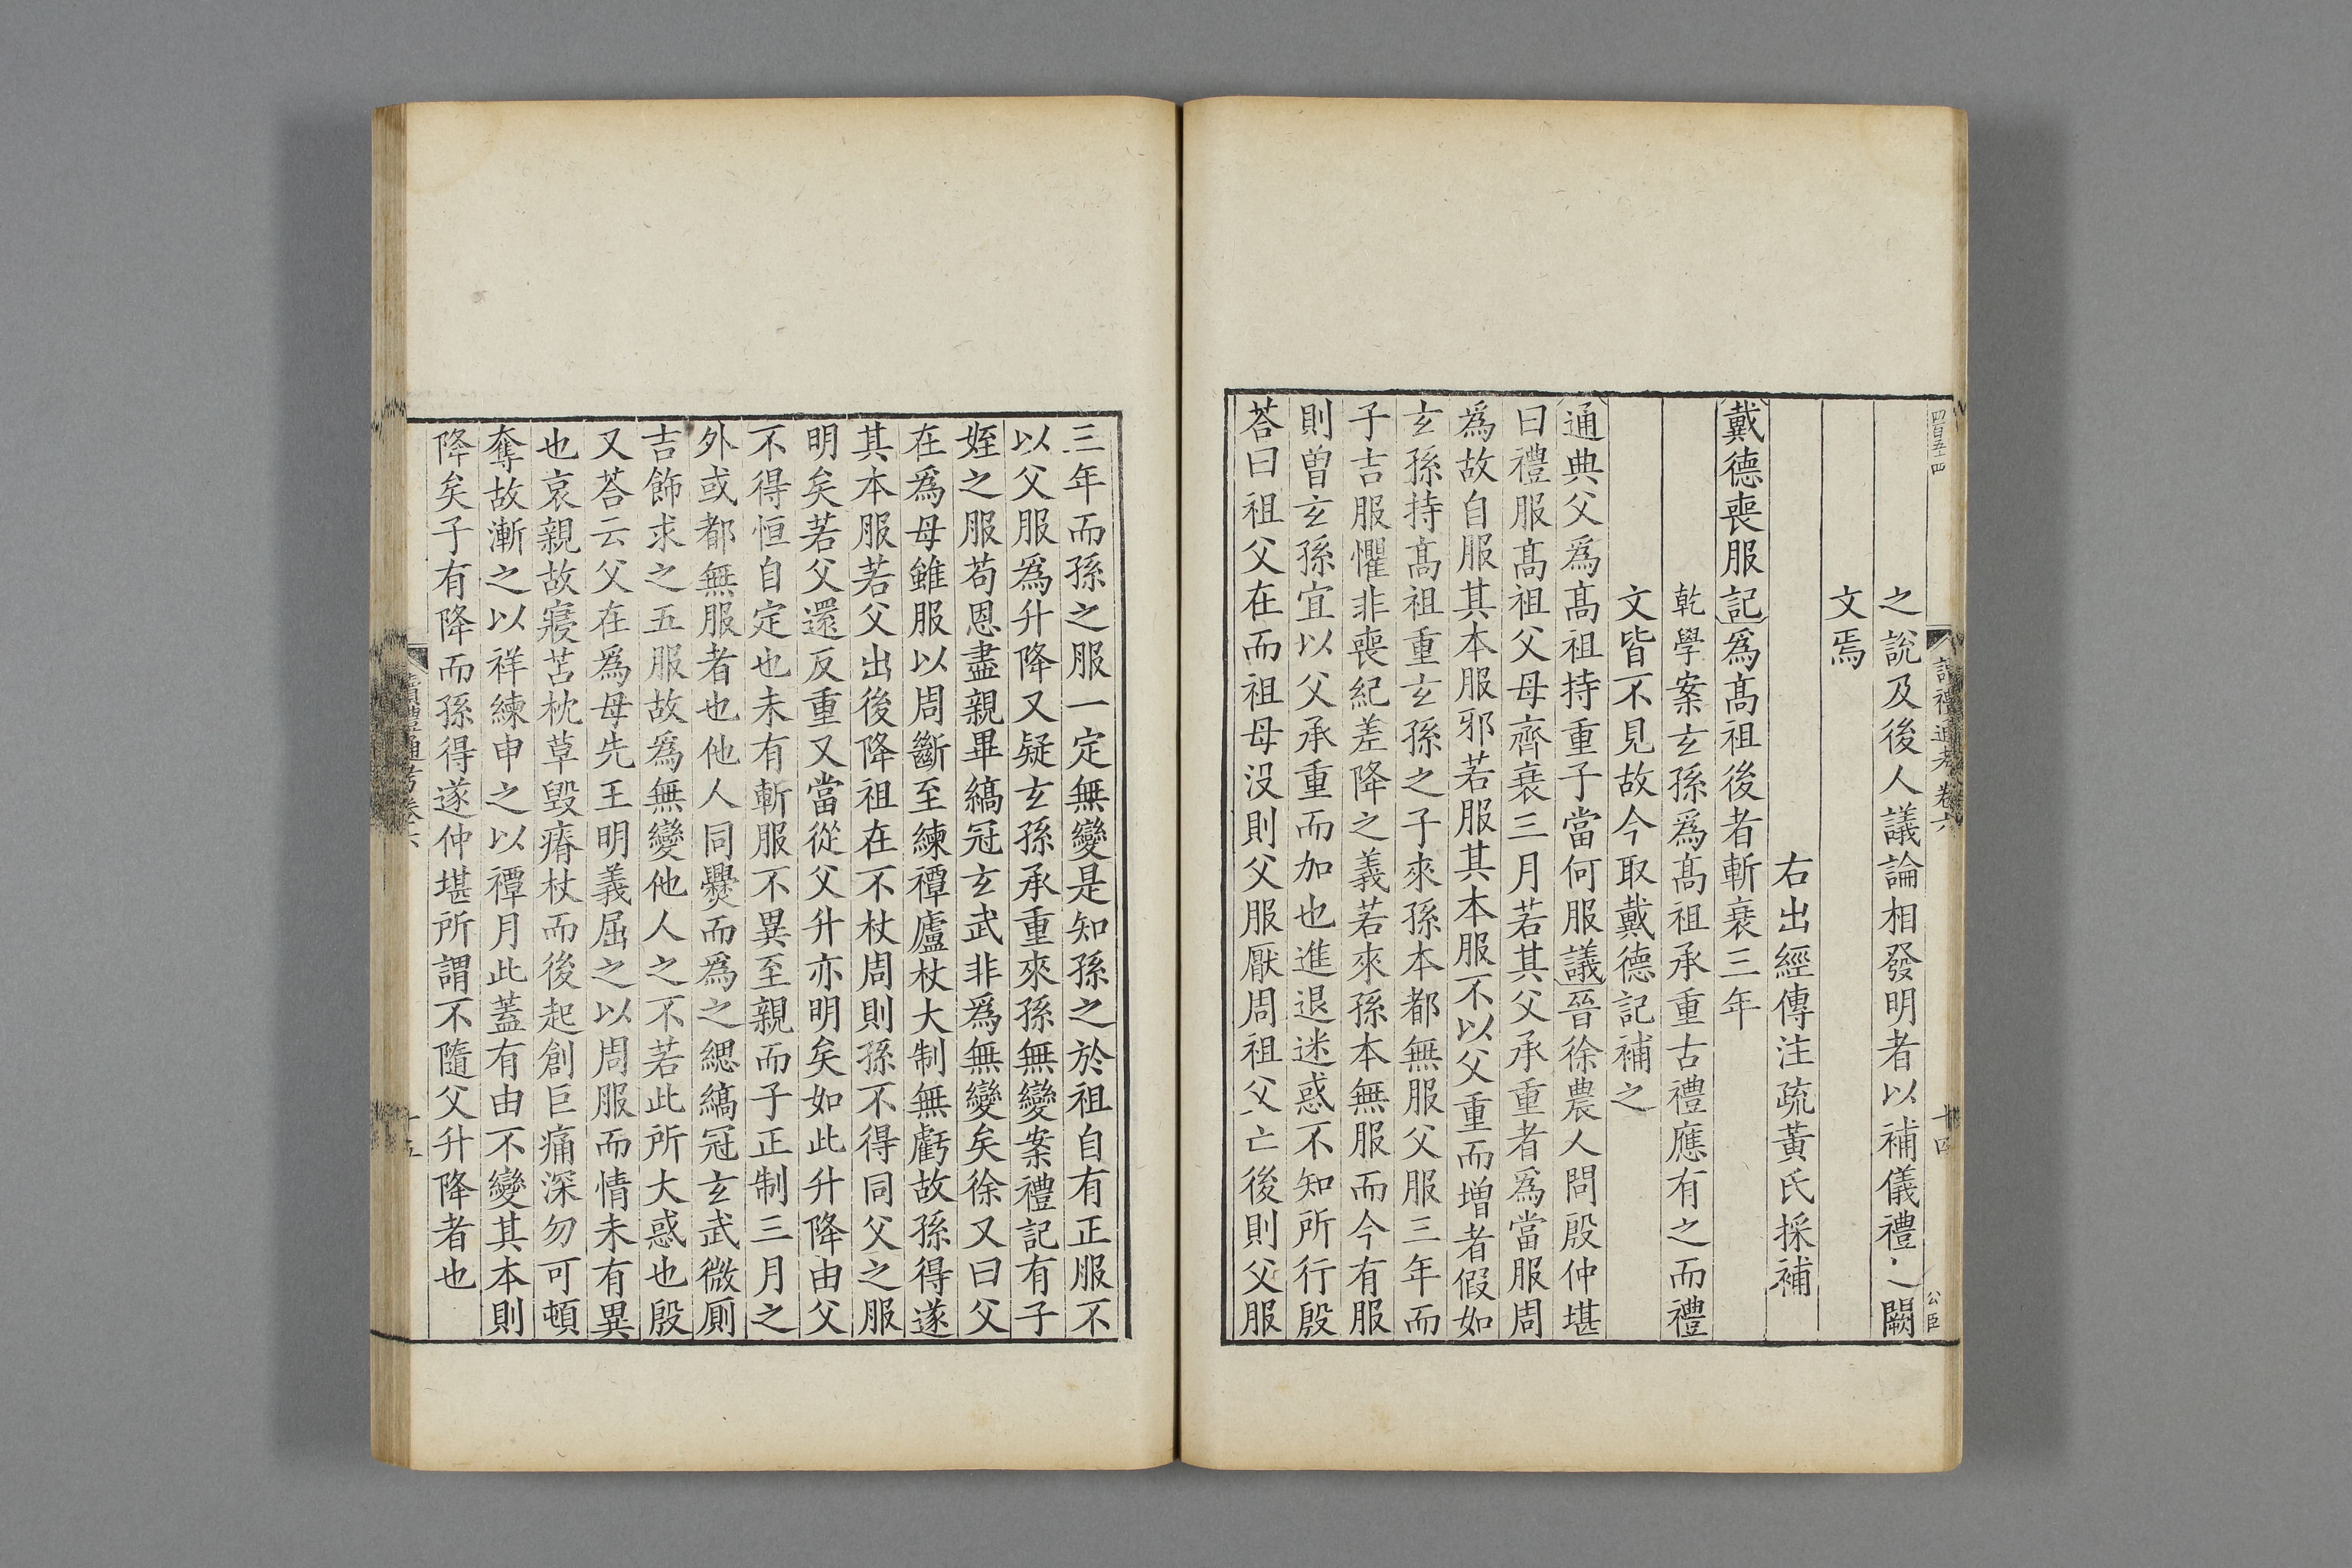 四百五十四
讀禮通考卷六
十四
公臣
之說及後人議論相發明者以補儀禮之闕
文焉
右出經傳注疏黃氏採補
戴德喪服記爲髙祖後者斬衰三年
乾學案玄孫爲髙祖承重古禮應有之而禮
文皆不見故今取戴德記補之
通典父爲髙祖持重子當何服議晉徐農人問殷仲堪
曰禮服髙祖父母齊衰三月若其父承重者爲當服周
爲故自服其本服邪若服其本服不以父重而增者假如
玄孫持髙祖重玄孫之子來孫本都無服父服三年而
子吉服懼非喪紀差降之義若來孫本無服而今有服
則曾玄孫宜以父承重而加也進退迷惑不知所行殷
荅曰祖父在而祖母没則父服厭周祖父亡後則父服
三年而孫之服一定無變是知孫之於祖自有正服不
以父服爲升降又疑玄孫承重來孫無變案禮記有子
姪之服苟恩盡親畢縞冠玄武非爲無變矣徐又曰父
在爲母雖服以周斷至練禫廬杖大制無虧故孫得遂
其本服若父出後降祖在不杖周則孫不得同父之服
明矣若父還反重又當從父升亦明矣如此升降由父
不得恒自定也未有斬服不異至親而子正制三月之
外或都無服者也他人同爨而爲之緦縞冠玄武微厠
吉飾求之五服故爲無變他人之不若此所大惑也殷
又荅云父在爲母先王明義屈之以周服而情未有異
也哀親故寢苫枕草毀瘠杖而後起創巨痛深勿可頓
奪故漸之以祥練申之以禫月此蓋有由不變其本則
降矣子有降而孫得遂仲堪所謂不隨父升降者也
讀禮通考卷六
十五